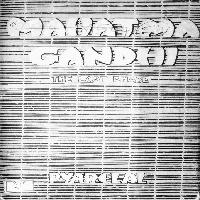 MAHATMA
GANDHI
THE LAST PHASE
PYARELAL